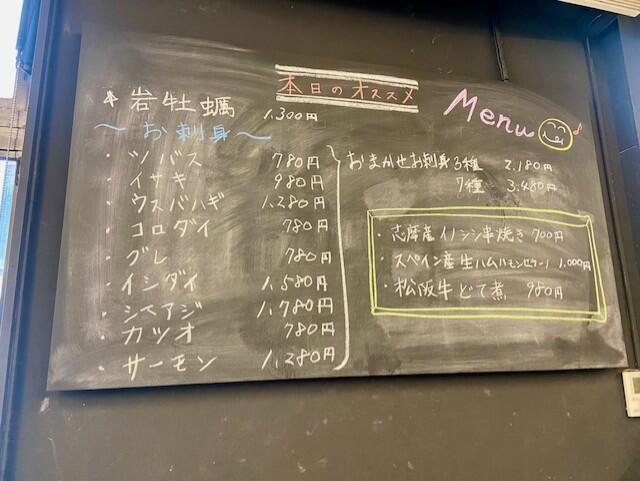 本日のオススメ
Menu
岩牡蠣 1,300円
〜お刺身〜
・ツバス 780円
・イサキ 980円
・ウスバハギ 1,280円
・コロダイ 780円
・グレ 780円
・イシダイ 1,580円
・シマアジ 1,780円
・カツオ 780円
・サーモン 1,280円
おまかせお刺身3種 2,180円
7種 3,480円
・志摩産イノシシ串焼き 700円
・スペイン産生ハム(ハモンセラーノ) 1,000円
・松阪牛どて煮 980円